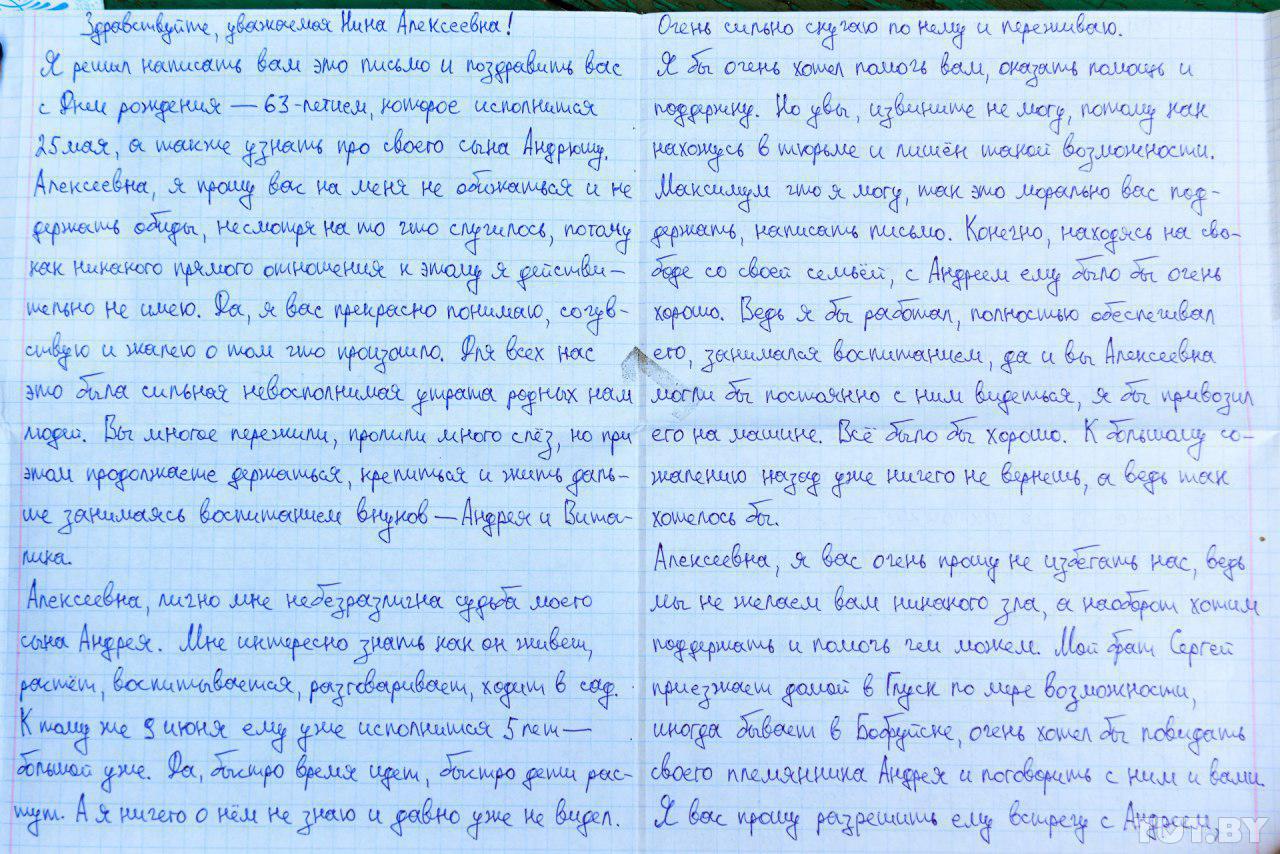 Здравствуйте, уважаемая Нина Алексеевна!
Я решил написать вам это письмо и поздравить вас
с Днем рождения — 63-летием, которое исполнится
25 мая, а также узнать про своего сына Андрюшу.
Алексеевна, я прошу вас на меня не обижаться и не
держать обиды, несмотря на то что случилось, потому
как никакого прямого отношения к этому я действи-
тельно не имею. Да, я вас прекрасно понимаю, сочув-
ствую и жалею о том что произошло. Для всех нас
это была сильная невосполнимая утрата родных нам
людей. Вы многое пережили, пролили много слёз, но при
этом продолжаете держаться, крепиться и жить даль-
ше занимаясь воспитанием внуков — Андрея и Вита-
лика.
Алексеевна, лично мне небезразлична судьба моего
сына Андрея. Мне интересно знать как он живет,
растёт, воспитывается, разговаривает, ходит в сад.
К тому же 9 июня ему уже исполнится 5 лет —
большой уже. Да, быстро время идет, быстро дети рас-
тут. А я ничего о нём не знаю и давно уже не видел.
Очень сильно скучаю по нему и переживаю.
Я бы очень хотел помочь вам, оказать помощь и
поддержку. Но увы, извините не могу, потому как
нахожусь в тюрьме и лишён такой возможности.
Максимум что я могу, так это морально вас под-
держать, написать письмо. Конечно, находясь на сво-
боде со своей семьёй, с Андреем ему было бы очень
хорошо. Ведь я бы работал, полностью обеспечивал
его, занимался воспитанием, да и вы Алексеевна
могли бы постоянно с ним видеться, я бы привозил
его на машине. Всё было бы хорошо. К большому со-
жалению назад уже ничего не вернешь, а ведь так
хотелось бы.
Алексеевна, я вас очень прошу не избегать нас, ведь
мы не желаем вам никакого зла, а наоборот хотим
поддержать и помочь чем можем. Мой брат Сергей
приезжает домой в Глуск по мере возможности,
иногда бывает в Бобруйске, очень хотел бы повидать
своего племянника Андрея и поговорить с ним и вами.
Я вас прошу разрешить ему встречу с Андреем,
TUT.BY